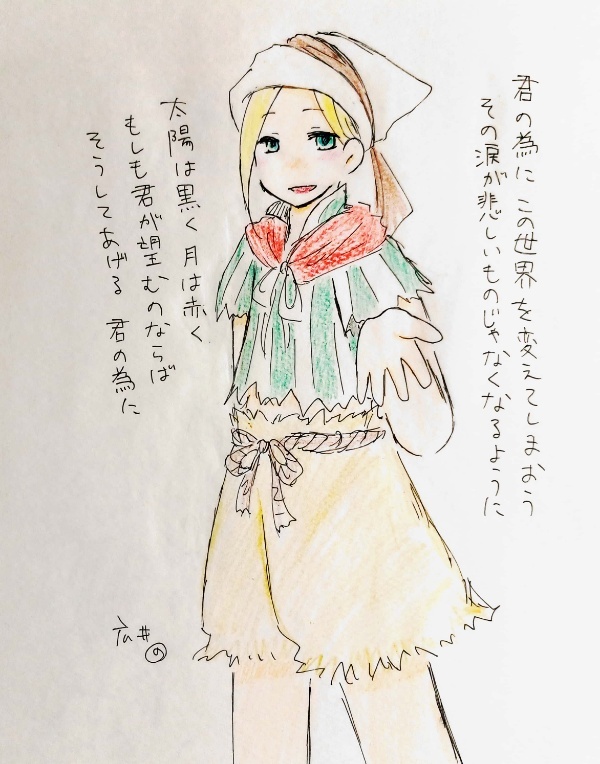 君の為に この世界を変えてしまおう
その涙が悲しいものじゃなくなるように
太陽は黒く 月は赤く
もしも君が望むのならば
そうしてあげる 君の為に
広井
の